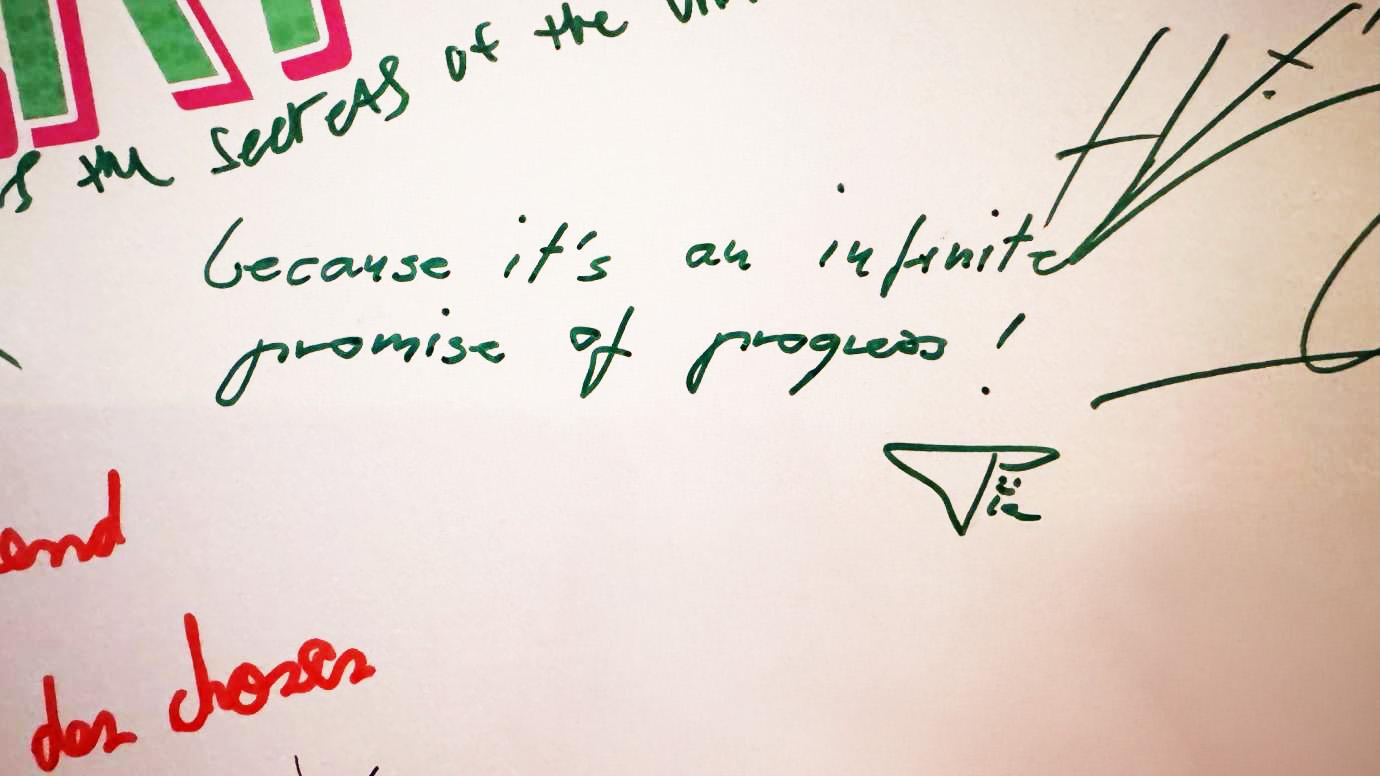 the secrets of the
because it's an infinite
promise of progress !
end
des choses